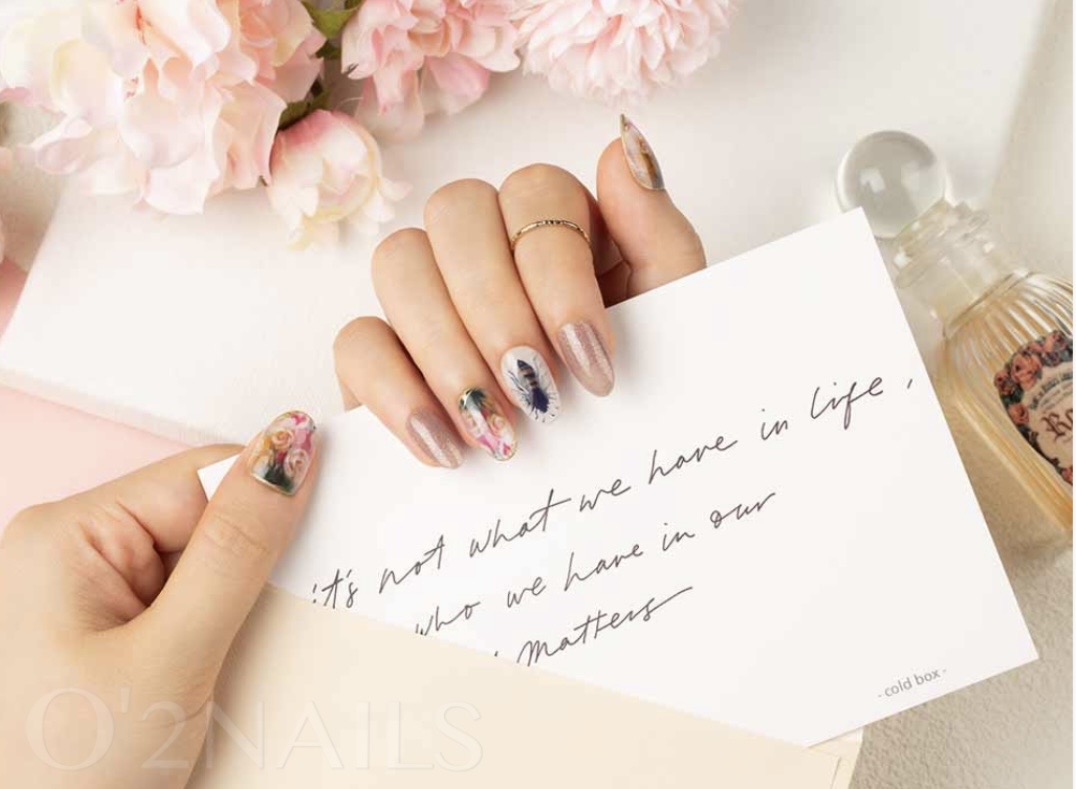 it's not what we have in life,
who we have in our
matters
- cold box -
O'2NAILS